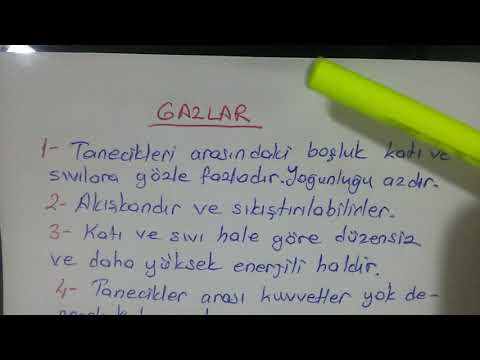 GAZLAR
1- Tanecikleri arasındaki boşluk katı ve
sıvılara gözle fazladır. Yoğunluğu azdır.
2- Akışkandır ve sıkıştırılabilirler.
3- Katı ve sıvı hale göre düzensiz
ve daha yüksek enerjili haldir.
4- Tanecikler arası kuvvetler yok de-